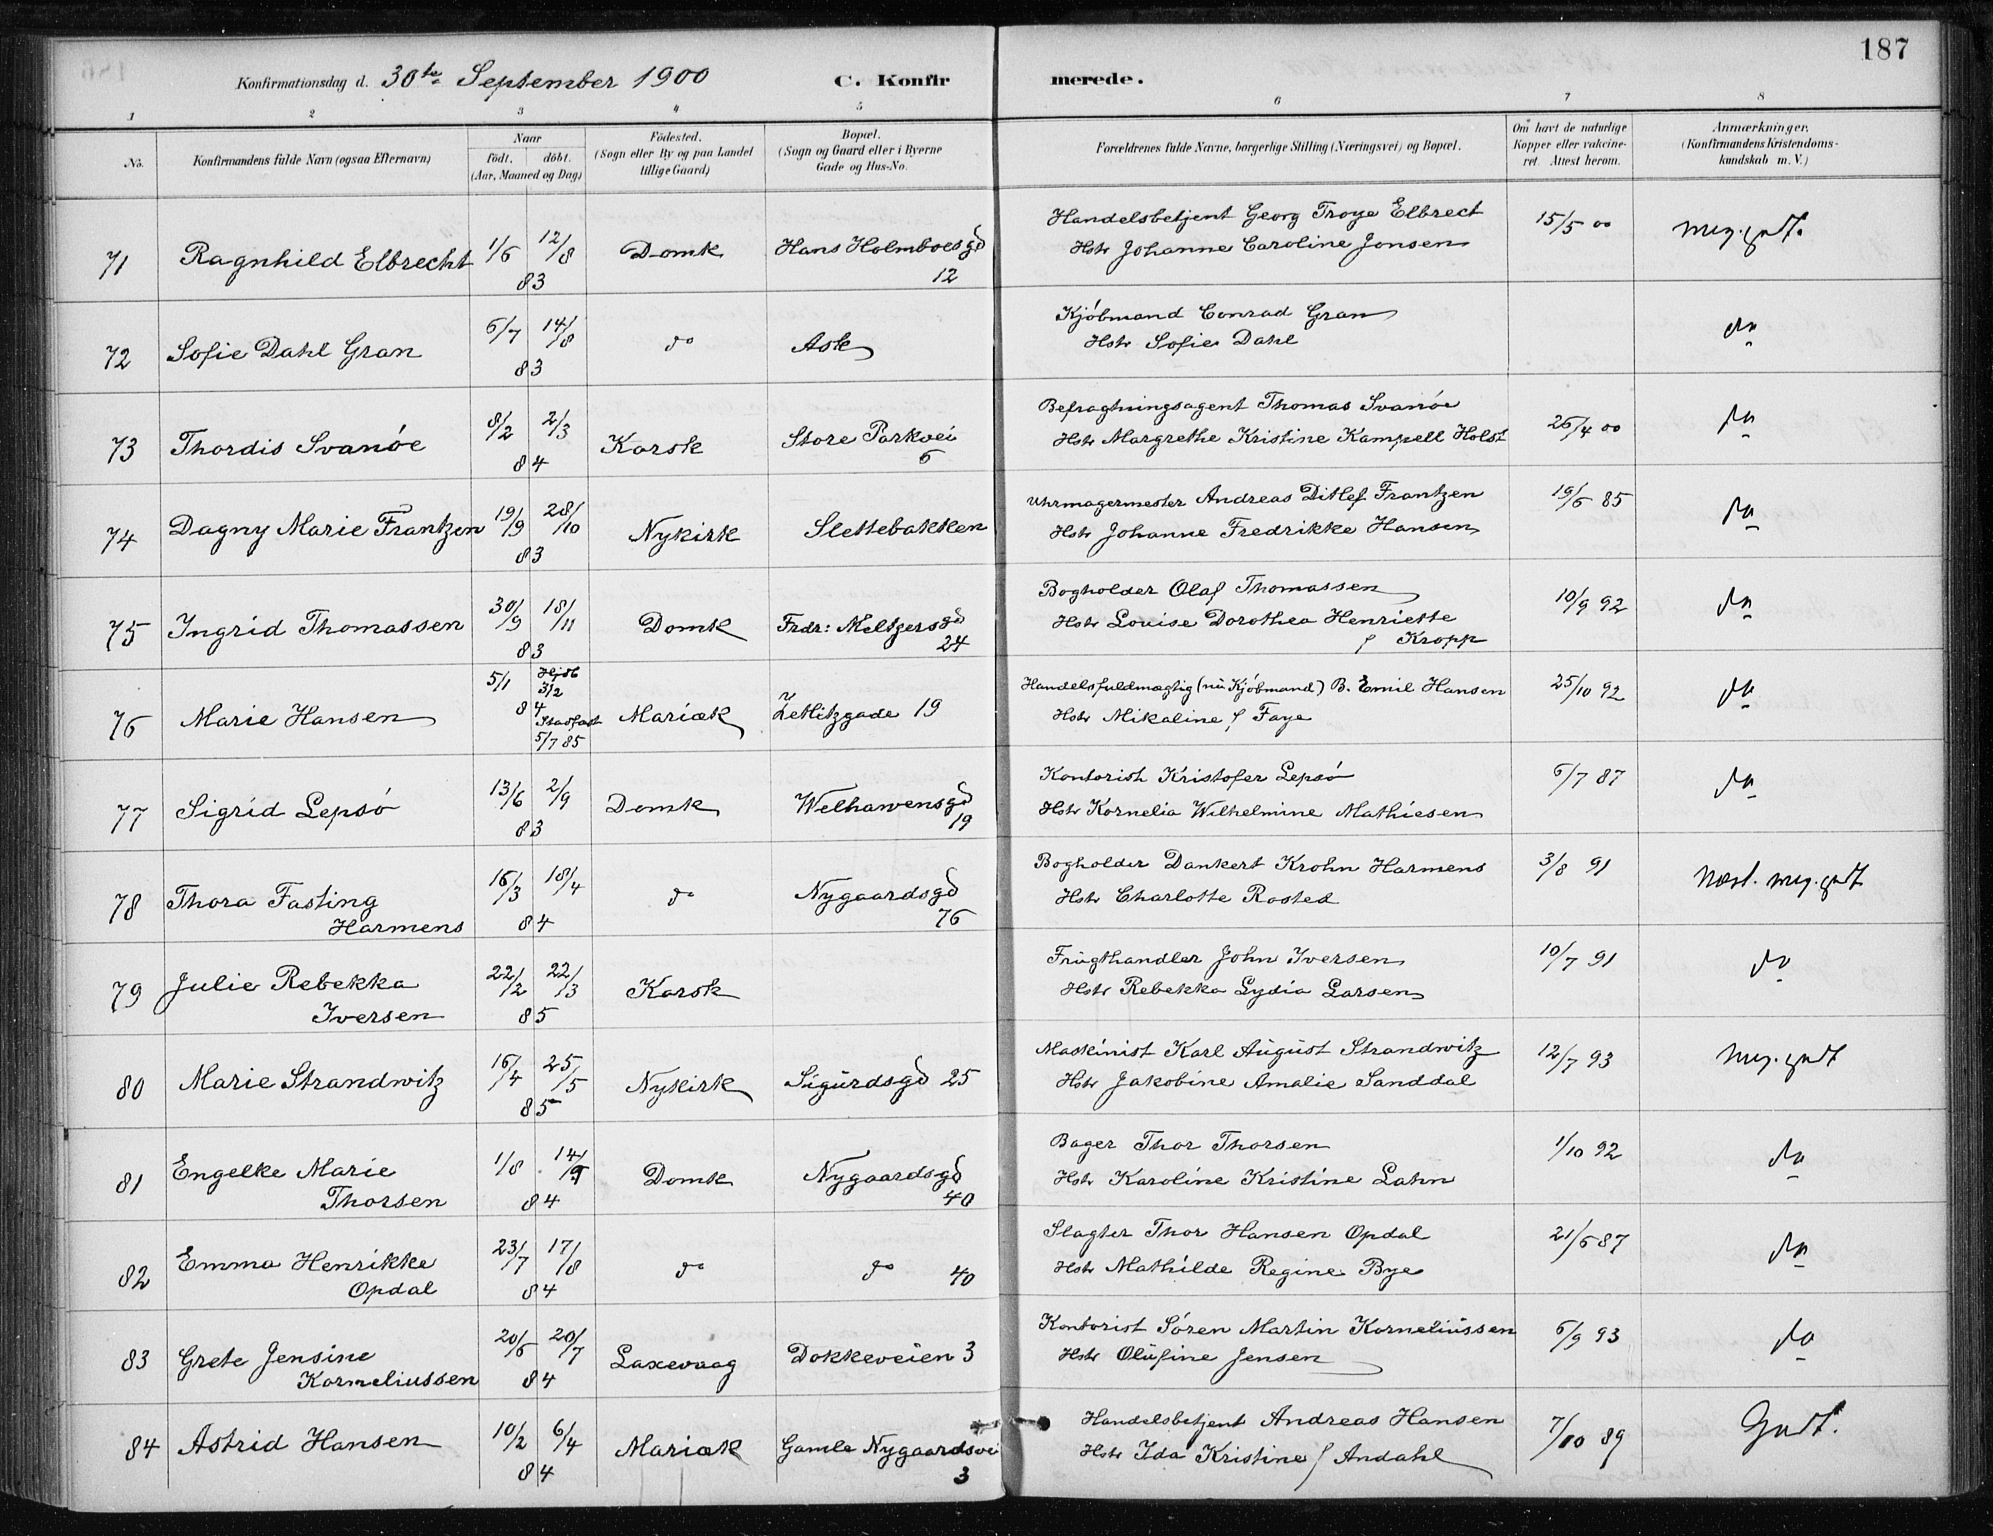 187
Konfirmationsdag d. 30te September 1900
C. Konfirmerede.
1 2 3 4 5 6 7 8
No.
Konfirmandens fulde Navn (ogsaa Efternavn)
Naar
födt. döbt.
(Aar, Maaned og Dag)
Födested.
(Sogn eller By og paa Landet
tillige Gaard)
Bopæl.
(Sogn og Gaard eller i Byerne
Gade og Hus-No.
Forældrenes fulde Navne, borgerlige Stilling (Næringsvei) og Bopæl.
Om havt de naturlige
Kopper eller vakcine-
ret. Attest herom.
Anmærkninger.
(Konfirmandens Kristendoms-
kundskab m. V.)
71 Ragnhild Elbrecht 1/6 12/8 83 Domk Hans Holmboesgd 12
Handelsbetjent Georg Troye Elbrect 15/5 00 Meg. godt.
Hstr Johanne Caroline Jonsen
72 Sofie Dahl Gran 6/7 14/8 83 do Ask
Kjøbmand Conrad Gran do
Hstr Sofie Dahl
73 Thordis Svanøe 8/2 2/3 84 Korsk Store Parkvei 6
Befragtningsagent Thomas Svanøe 26/4 00 do
Hstr Margrethe Kristine Kampell Holst
74 Dagny Marie Frantzen 19/9 28/10 83 Nykirk Slettebakken
Uhrmagermester Andreas Ditlef Frantzen 19/6 85 do
Hstr Johanne Fredrikke Hansen
75 Ingrid Thomassen 30/9 18/11 83 Domk Frdr: Meltzersgd 24
Bogholder Olaf Thomassen 10/9 92 do
Hstr Louise Dorothea Henriette
f Kropp
76 Marie Hansen 5/1 Hjdb 3/2 84 Stadfæst 5/7 85 Mariæk Zetlitzgade 19
Handelsfuldmægtig (nu Kjøbmand) B. Emil Hansen 25/10 92 do
Hstr Mikaline f Faye
77 Sigrid Lepsø 13/6 2/9 83 Domk Welhavensgd 19
Kontorist Kristofer Lepsø 6/7 87 do
Hstr Kornelia Wilhelmine Mathiesen
78 Thora Fasting
Harmens 16/3 18/4 84 do Nygaardsgd 76
Bogholder Dankert Krohn Harmens 3/8 91 Næst. meg. godt
Hstr Charlotte Rosted
79 Julie Rebekka
Iversen 22/2 22/3 85 Korsk
Frugthandler John Iversen 10/7 91 do
Hstr Rebekka Lydia Larsen
80 Marie Strandwitz 16/4 25/5 85 Nykirk Sigurdsgd 25
Maskinist Karl August Strandwitz 12/7 93 Meg. godt
Hstr Jakobine Amalie Sanddal
81 Engelke Marie
Thorsen 1/8 14/9 84 Domk Nygaardsgd 40
Bager Thor Thorsen 1/10 92 do
Hstr Karoline Kristine Lahn
82 Emma Henrikke
Opdal 23/7 17/8 84 do do 40
Slagter Thor Hansen Opdal 21/6 87 do
Hstr Mathilde Regine Bye
83 Grete Jensine
Korneliussen 20/6 20/7 84 Laxevaag Dokkeveien 3
Kontorist Søren Martin Korneliussen 6/9 93 do
Hstr Olufine Jensen
84 Astrid Hansen 10/2 6/4 84 Mariæk Gamle Nygaardsvei 3
Handelsbetjent Andreas Hansen 7/10 89 Godt.
Hstr Ida Kristine f Andahl